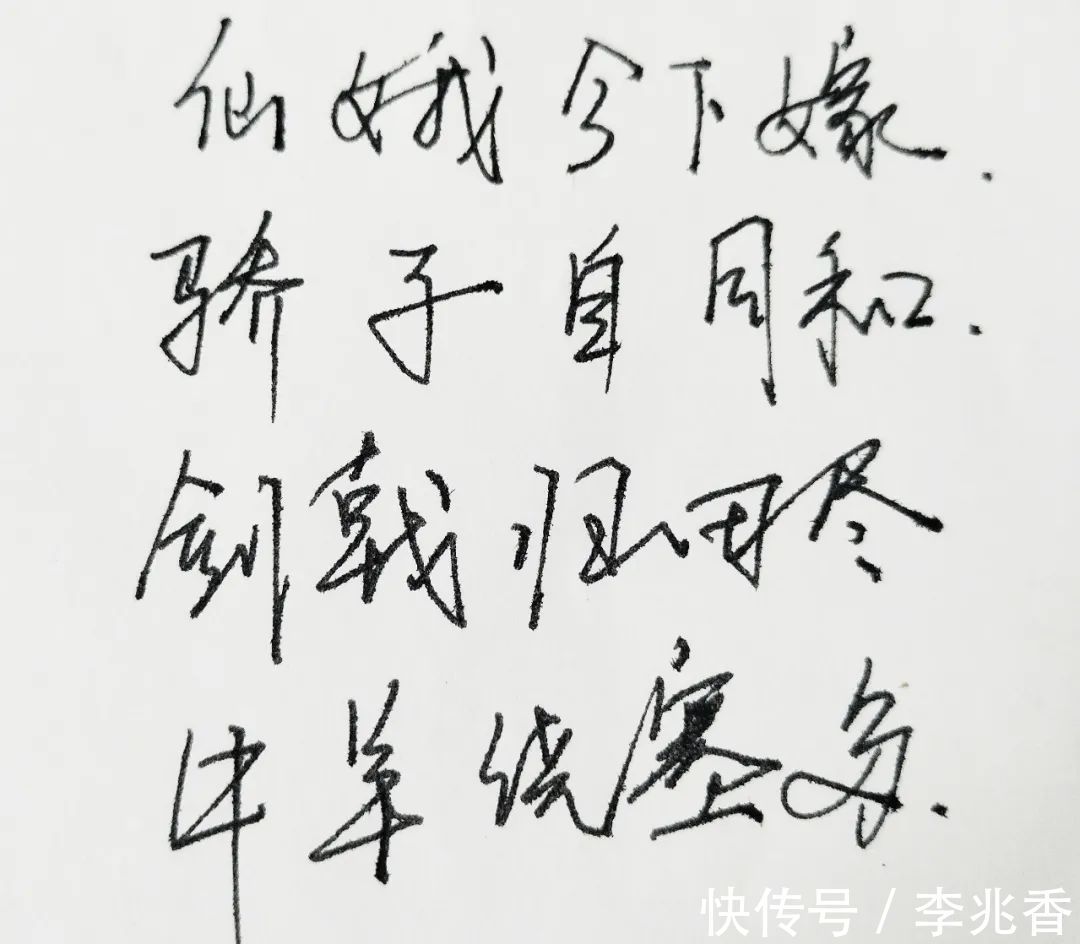 仙娥今下嫁.
骄子自同和.
剑戟归田尽
牛羊绕塞多.
快传号/李兆香